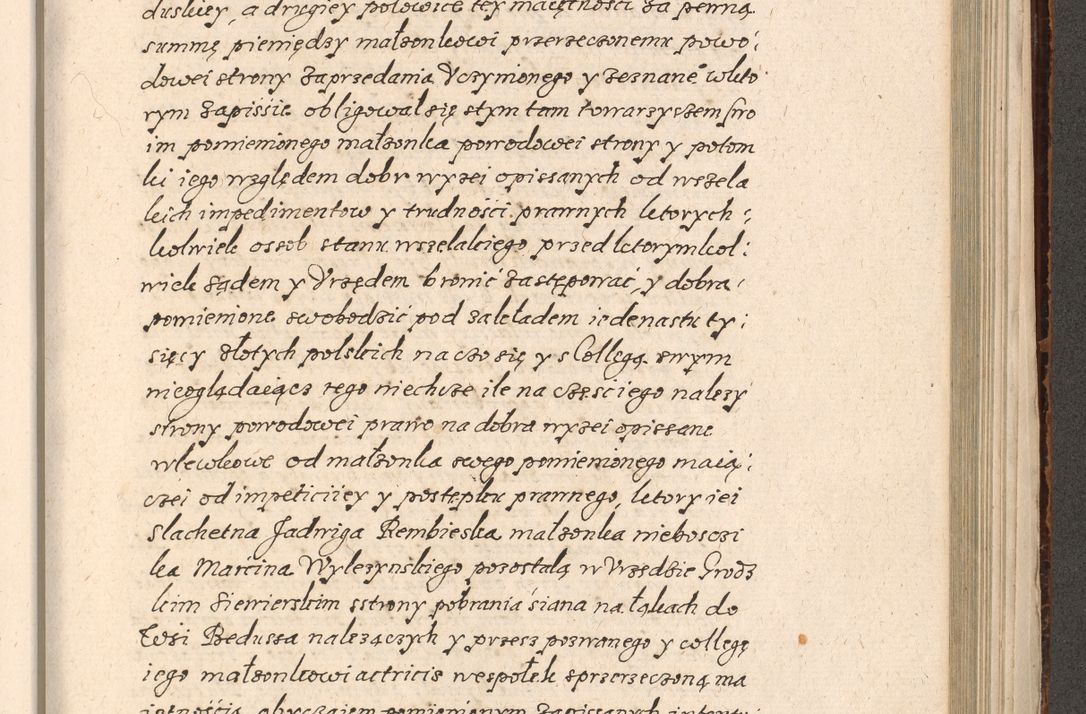 duskiey, a drugiey połowice tey maiętności za pewną
summę pieniędzy małzonkowi przerzeczonemu powo:
dowei strony zaprzedania Vczynionego y zeznane w kto
rym zapissie obligował się s tym tam towarzyszem swo
im pomienionego małzonka powodowei strony y potom
ki iego względem dobr wyzei opissanych od wszela
kich impedimentow y trudności prawnych ktorych:
kolwiek ossob stanu wszelakiego przed ktorymkol:
wiek sądem y Vrzędem bronić zastępować, y dobra
pomienione swobodzić pod zakładem iedenastu ty:
sięcy złotych polskich na czo się y s Collegą swym
nieoglądaiącz tego niechcze ile na częsc iego nalezy
strony powodowei prawo na dobra wyzei opissane
wlewkowe od małzonka swego pomienionego maią:
czei od impeticiiey y postępku prawnego, ktory iei
Slachetna Jadwiga Rembieska małzonka nieboszczi
ka Marcina Wylezynskiego pozostałą w Vrzędzie Grodz
kim Siewierskim s strony pobrania siana na łąkach do
Wsi Bedussa nalezączych y przesz pozwanego y collegę
iego małzonkowi actricis wespołek s przerzeczoną ma
iętnością obyczaiem pomienionym zapissanych intentu: